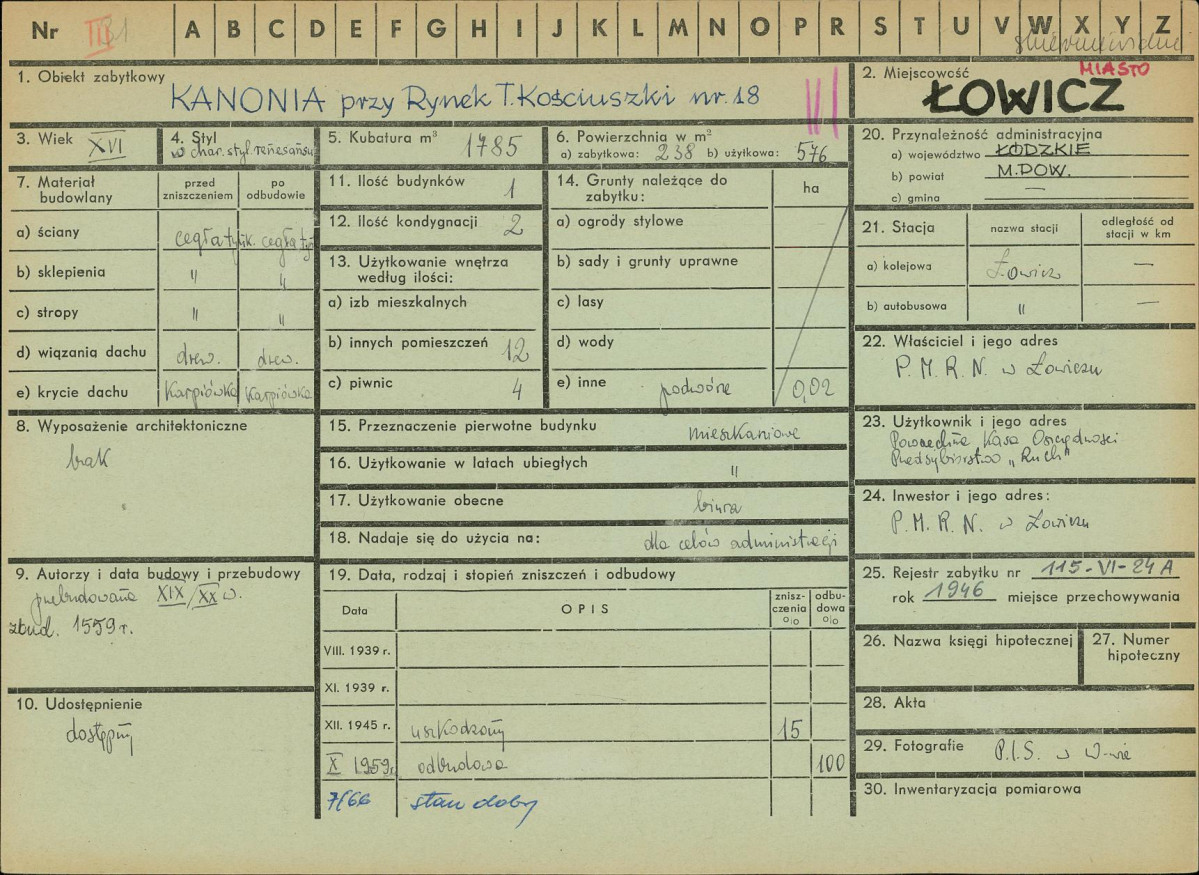 Nr III
A B C D E F G H I J K L M N O P R S T U V W X Y Z
1. Obiekt zabytkowy
KANONIA przy Rynek T. Kościuszki nr. 18
2. Miejscowość MIASTO
ŁOWICZ
3. Wiek XVI
4. Styl
w char. styl. renesansu
5. Kubatura m³ 1785
6. Powierzchnia w m²
a) zabytkowa: 238 b) użytkowa: 576
7. Materiał budowlany
przed zniszczeniem
po odbudowie
a) ściany cegła tynk. cegła tyn
b) sklepienia " "
c) stropy " "
d) wiązania dachu drew. drew.
e) krycie dachu Karpiówka Karpiówka
8. Wyposażenie architektoniczne
brak
9. Autorzy i data budowy i przebudowy
przebudowana XIX/XX w.
zbud. 1559 r.
10. Udostępnienie
dostępny
11. Ilość budynków 1
12. Ilość kondygnacji 2
13. Użytkowanie wnętrza
według ilości:
a) izb mieszkalnych
b) innych pomieszczeń 12
c) piwnic 4
14. Grunty należące do
zabytku:
ha
a) ogrody stylowe
b) sady i grunty uprawne
c) lasy
d) wody
e) inne podwórze 0,02
15. Przeznaczenie pierwotne budynku mieszkaniowe
16. Użytkowanie w latach ubiegłych "
17. Użytkowanie obecne biura
18. Nadaje się do użycia na: dla celów administracji
19. Data, rodzaj i stopień zniszczeń i odbudowy
Data
OPIS
znisz-
czenia
o/o
odbu-
dowa
o/o
VIII. 1939 r.
XI. 1939 r.
XII. 1945 r. uszkodzony 15
X 1959 r. odbudowa 100
7/66 stan doby
20. Przynależność administracyjna
a) województwo ŁÓDZKIE
b) powiat M.POW.
c) gmina —
21. Stacja
nazwa stacji
odległość od
stacji w km
a) kolejowa Łowicz —
b) autobusowa " —
22. Właściciel i jego adres
P. M. R. N. w Łowiczu
23. Użytkownik i jego adres
Powszechna Kasa Oszczędności
Przedsiębiorstwo „Ruch"
24. Inwestor i jego adres:
P. M. R. N. w Łowiczu
25. Rejestr zabytku nr 115-VI-24 A
rok 1946 miejsce przechowywania
26. Nazwa księgi hipotecznej
27. Numer
hipoteczny
28. Akta
29. Fotografie P.I.S. w W-wie
30. Inwentaryzacja pomiarowa